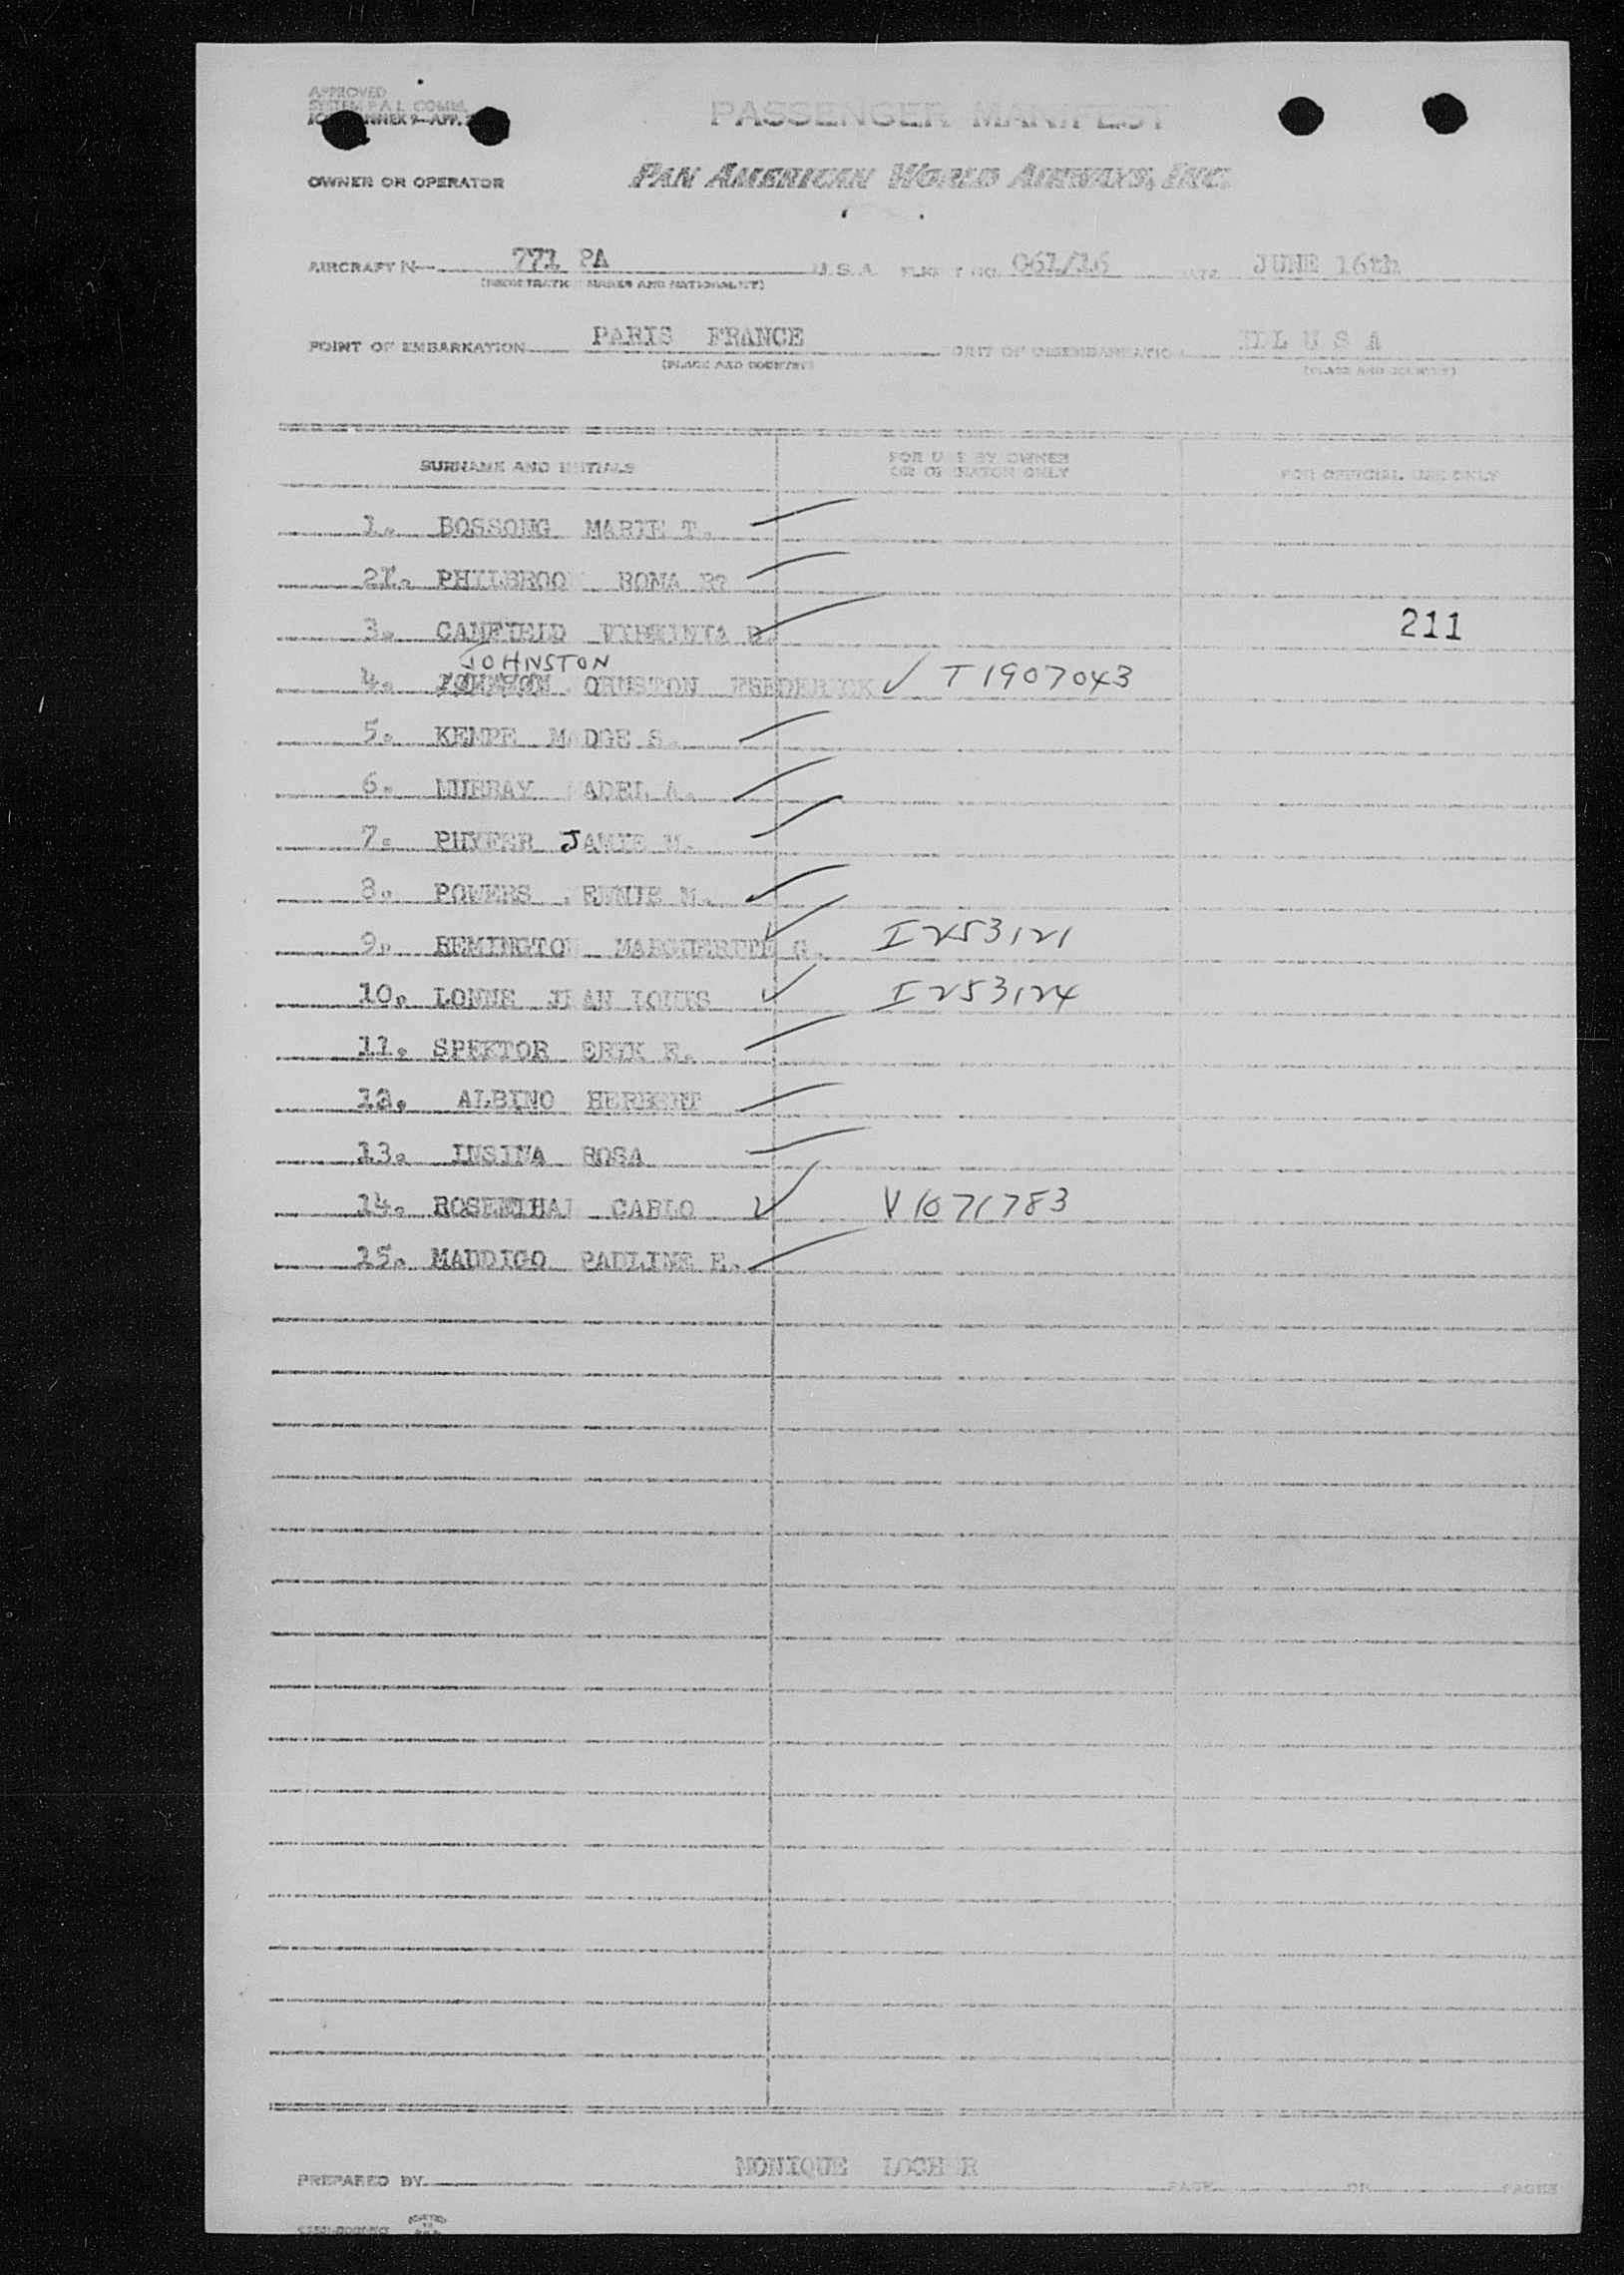 APPROVED
SYSTEM F.A.L. COMM.
ANNEX 9—APP. 2
PASSENGER MANIFEST
OWNER OR OPERATOR PAN AMERICAN WORLD AIRWAYS, INC.
AIRCRAFT N 771 PA U.S.A. FLIGHT NO. 061/16 DATE JUNE 16th
(REGISTRATION MARKS AND NATIONALITY)
POINT OF EMBARKATION PARIS FRANCE POINT OF DISEMBARKATION IDL U S A
(PLACE AND COUNTRY) (PLACE AND COUNTRY)
SURNAME AND INITIALS FOR USE BY OWNER OR OPERATOR ONLY FOR OFFICIAL USE ONLY
1. BOSSONG MARIE T.
2. PHILBROO ROMA
3. CANFIELD VIRGINIA B. 211
JOHNSTON
4. OHNSTON FREDERICK ✓ T1907043
5. KEMPE MADGE S.
6. MURRAY ADEL A.
7. PHYFER JAMIE M.
8. POWERS ENNIE M.
9. REMINGTON MARGUERITE G. I253121
10. LONNE JEAN LOUIS I253124
11. SPEKTOR ERYK E.
12. ALBINO HERBERT
13. INSINA ROSA
14. ROSENTHAL CARLO V1071783
15. MAUDIGO PAULINE E.
PREPARED BY MONIQUE LOCHER PAGE OF PAGES